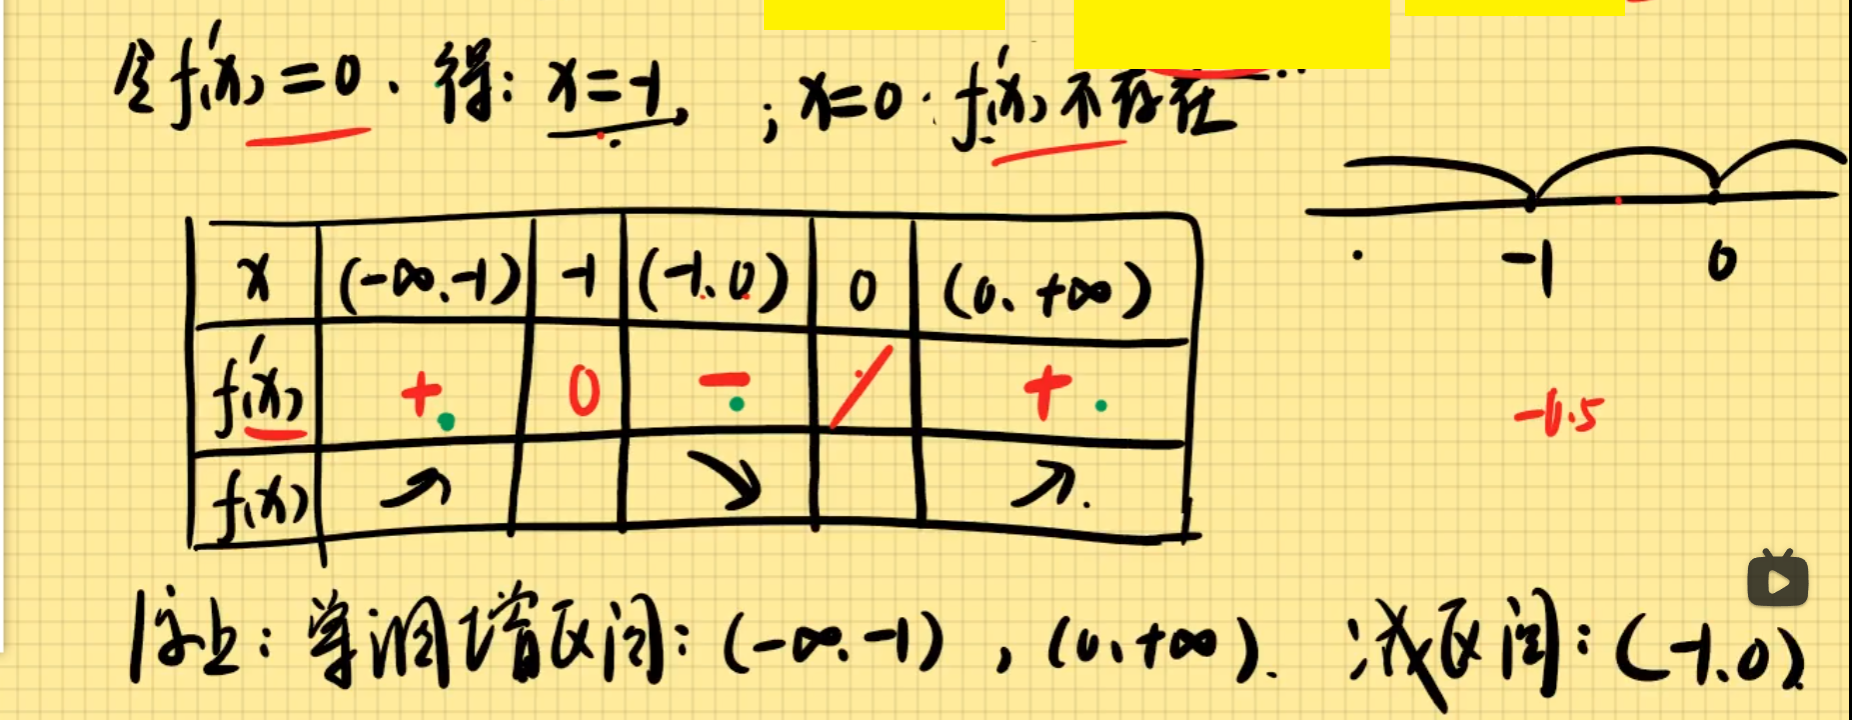 令f'(x)=0. 得: x=-1, ; x=0: f'(x)不存在
-1 0
x (-∞.-1) -1 (-1.0) 0 (0.+∞)
f'(x) + 0 - / +
-0.5
f(x) ↗ ↘ ↗
综上: 单调增区间: (-∞.-1) , (0.+∞). 减区间: (-1.0)